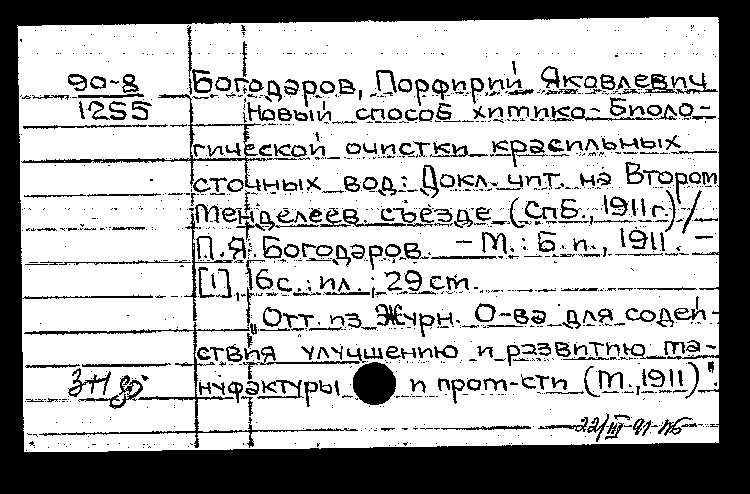 90-8 Богодаров, Порфирий Яковлевич
1255 Новый способ химико-биоло-
гической очистки красильных
сточных вод: Докл. чит. на Втором
Менделеев. съезде (Спб., 1911 г.) /
П. Я. Богодаров. - М.: Б. и., 1911. -
[1], 16 с.: ил.; 29 см.
"Отт. из Журн. О-ва для содей-
ствия улучшению и развитию ма-
нуфактуры и пром-сти (М., 1911)".
22/III-91